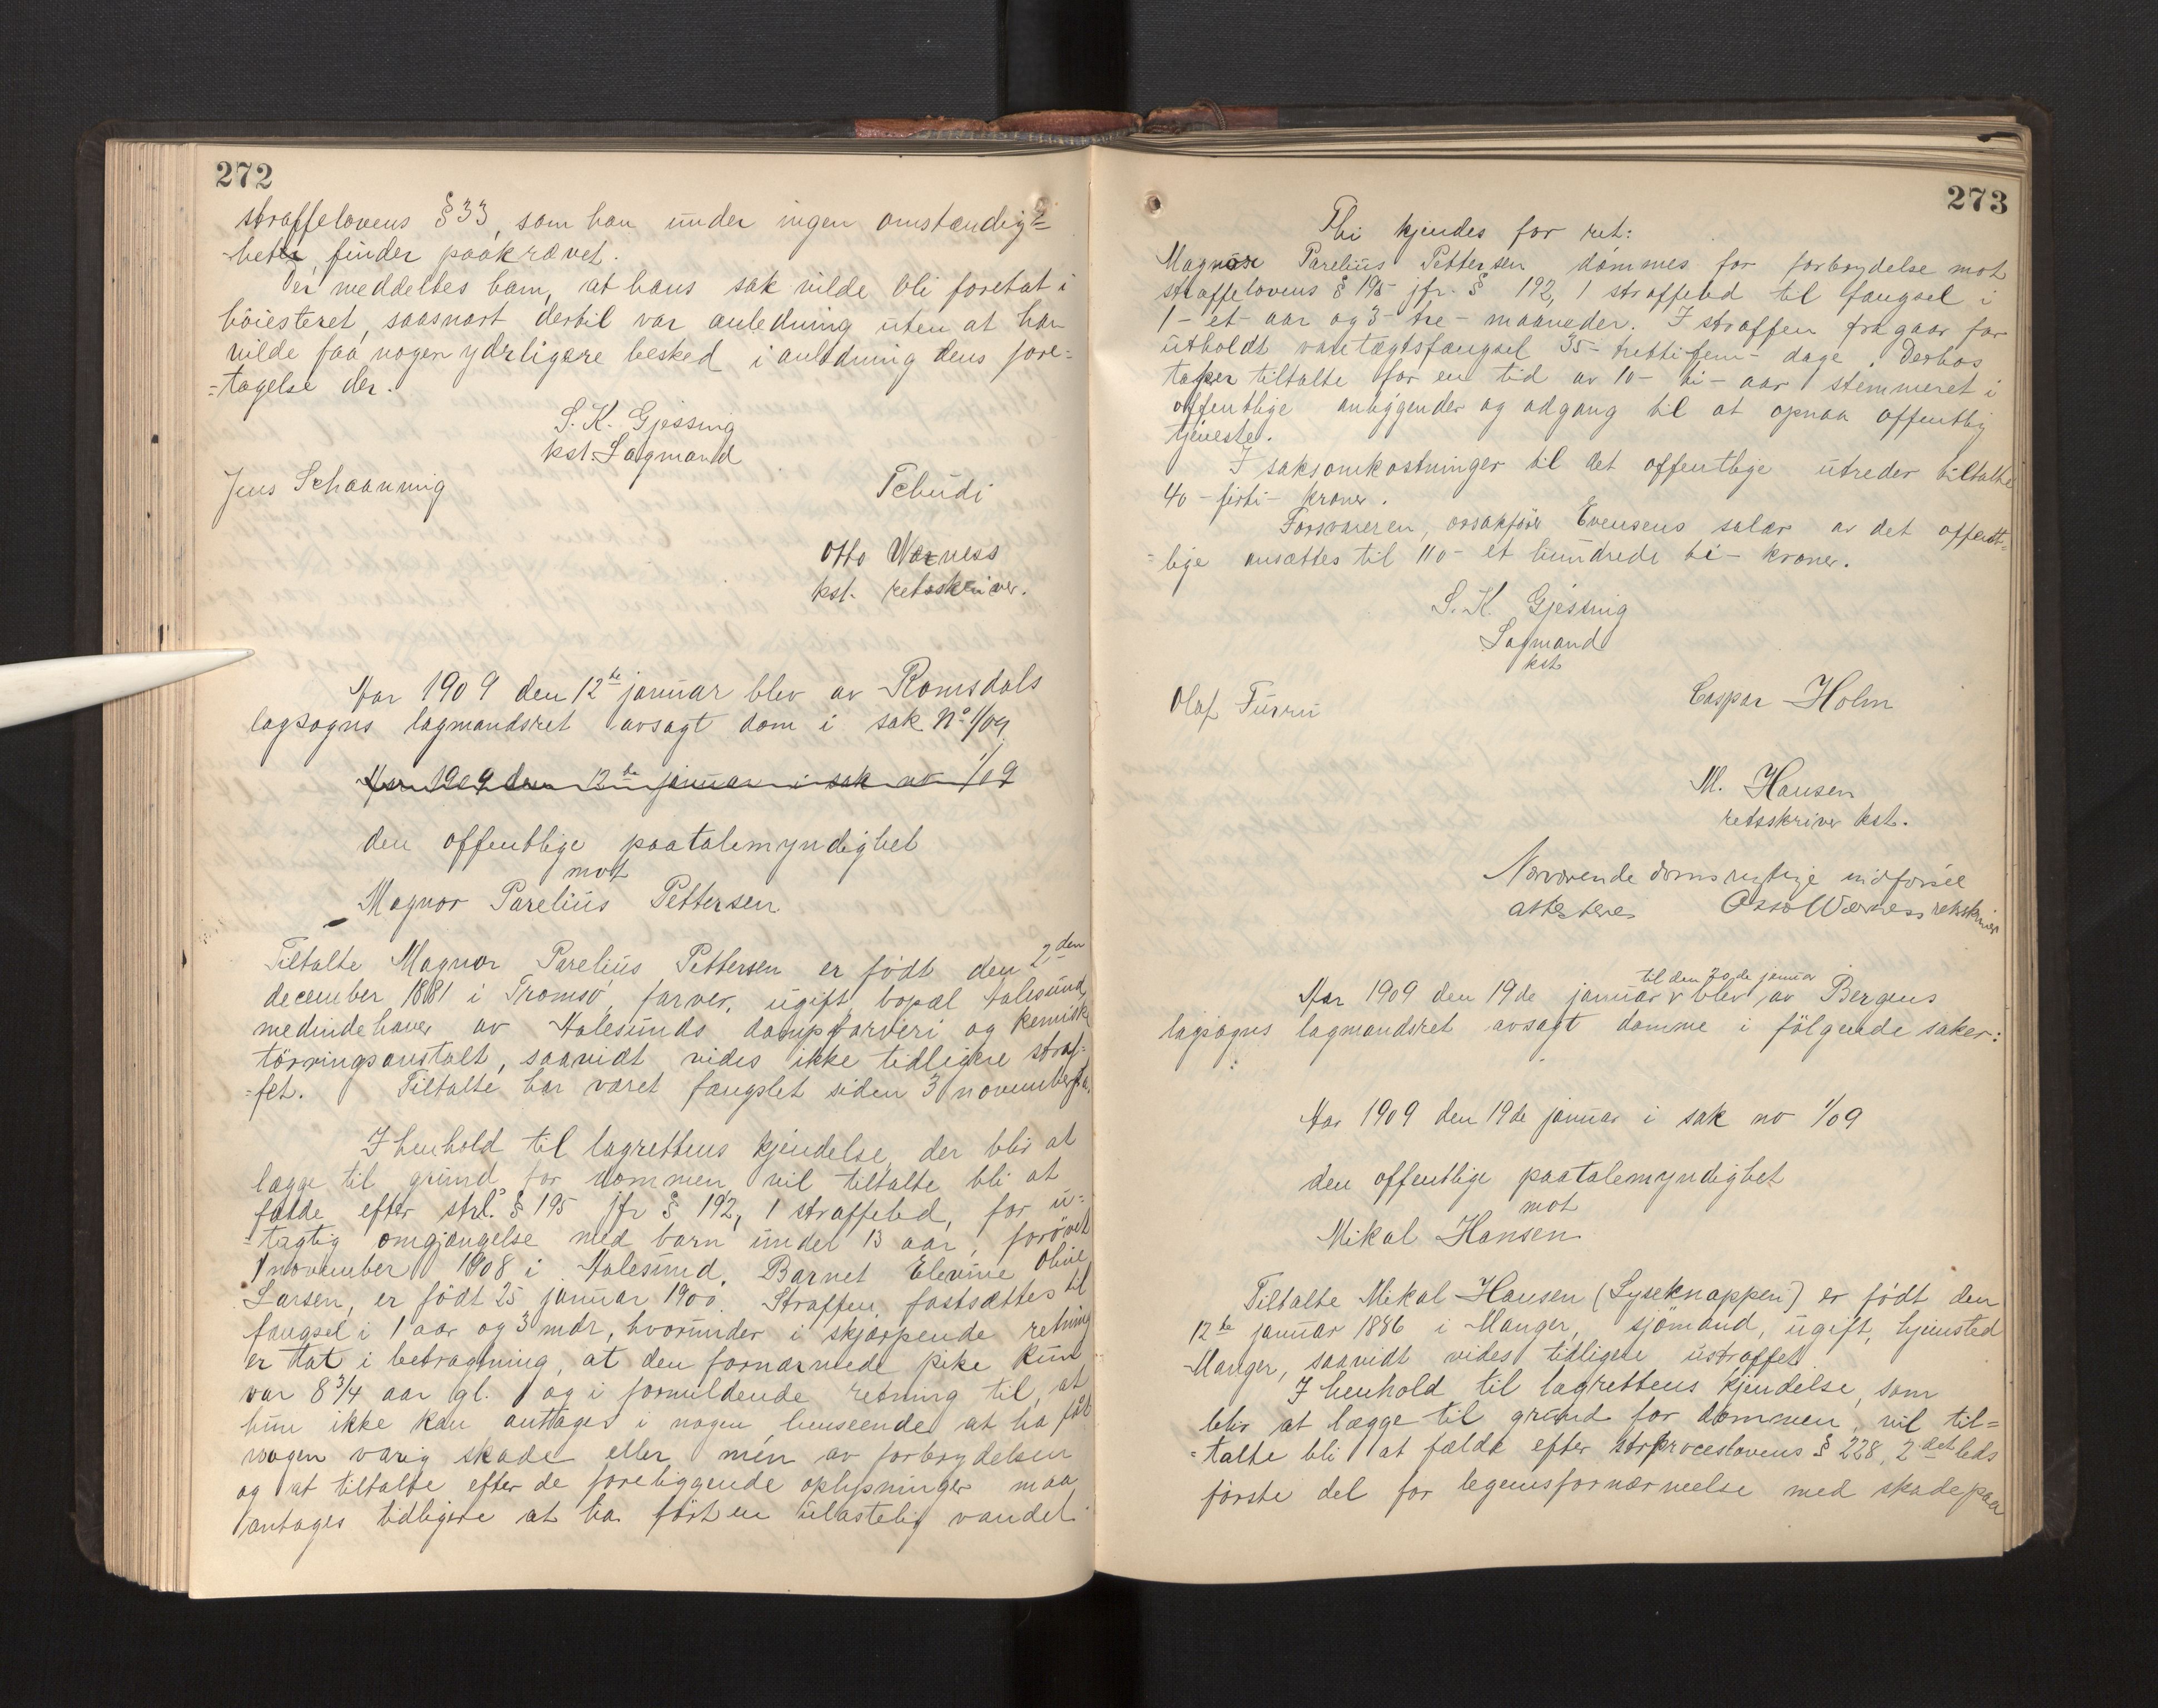 272
straffelovens § 33, som han under ingen omstændig=
-heter finder paakrævet.
Der meddeltes ham, at hans sak vilde bli foretat i
höiesteret, saasnart dertil var anledning uten at han
vilde faa nogen yderligere besked i anledning dens fore=
=tagelse der.
S. K. Gjessing
kst. Lagmand
Jens Schaanning Tchudi
Otto Værness
kst. retsskriver.
Aar 1909 den 12te januar blev av Romsdals
lagsogns lagmandsret avsagt dom i sak No 1/09.
Aar 1909 den 12te januar i sak no 1/09
den offentlige paatalemyndighet
mot
Magnor Parelius Pettersen
Tiltalte Magnor Parelius Pettersen er födt den 2den
december 1881 i Tromsö, farver, ugift, bopæl Aalesund,
medindehaver av Aalesunds dampfarveri og kemiske
törringsanstalt, saavidt vides ikke tidligere straf=
=fet. Tiltalte har været fængslet siden 3 november f.a.
I henhold til lagrettens kjendelse, der blir at
lægge til grund for dommen, vil tiltalte bli at
fælde efter strl. § 195 jfr § 192, 1 straffebud, for u=
=tugtig omgjængelse med barn under 13 aar, forövet
1 november 1908 i Aalesund. Barnet Elevine Olive
Larsen, er födt 25 januar 1900. Straffen fastsættes til
fængsel i 1 aar og 3 mdr, hvorunder i skjærpende retning
er tat i betragtning, at den fornærmede pike kun
var 8 3/4 aar gl. og i formildende retning til, at
hun ikke kan antages i nogen henseende at ha fåt
nogen varig skade eller mén av forbrydelsen
og at tiltalte efter de foreliggende oplysninger maa
antages tidligere at ha fört en ulastelig vandel.
273
Thi kjendes for ret:
Magnor Parelius Pettersen dömmes for forbrydelse mot
straffelovens § 195 jfr. § 192, 1 straffebud til fængsel i
1 - et - aar og 3 - tre - maaneder. I straffen fragaar for
utholdt varetægtsfængsel 35 - trettifem - dage. Derhos
taper tiltalte for en tid av 10 - ti - aar stemmeret i
offentlige anliggender og adgang til at opnaa offentlig
tjeneste.
I saksomkostninger til det offentlige utreder tiltalte
40 - firti - kroner.
Forsvareren, orsakförer Evensens salær av det offent=
=lige ansættes til 110 - et hundrede ti - kroner.
S. K. Gjessing
Lagmand
kst
Olaf Furru Caspar Holm
M. Hansen
retsskriver kst.
Nærværende doms rigtige indförsel
attesteres Otto Værness retsskriver
til den 20de januar
Aar 1909 den 19de januar v blev av Bergens
lagsogns lagmandsret avsagt domme i fölgende saker:
Aar 1909 den 19de januar i sak no 1/09
den offentlige paatalemyndighet
mot
Mikal Hansen
Tiltalte Mikal Hansen (Lyseknappen) er födt den
12te januar 1886 i Manger, sjömand, ugift, hjemsted
Manger, saavidt vides tidligere ustraffet.
I henhold til lagrettens kjendelse, som
blir at lægge til grund for dommen, vil til=
=talte bli at fælde efter strproceslovens § 228, 2det leds
förste del for legemsfornærmelse med skade paa